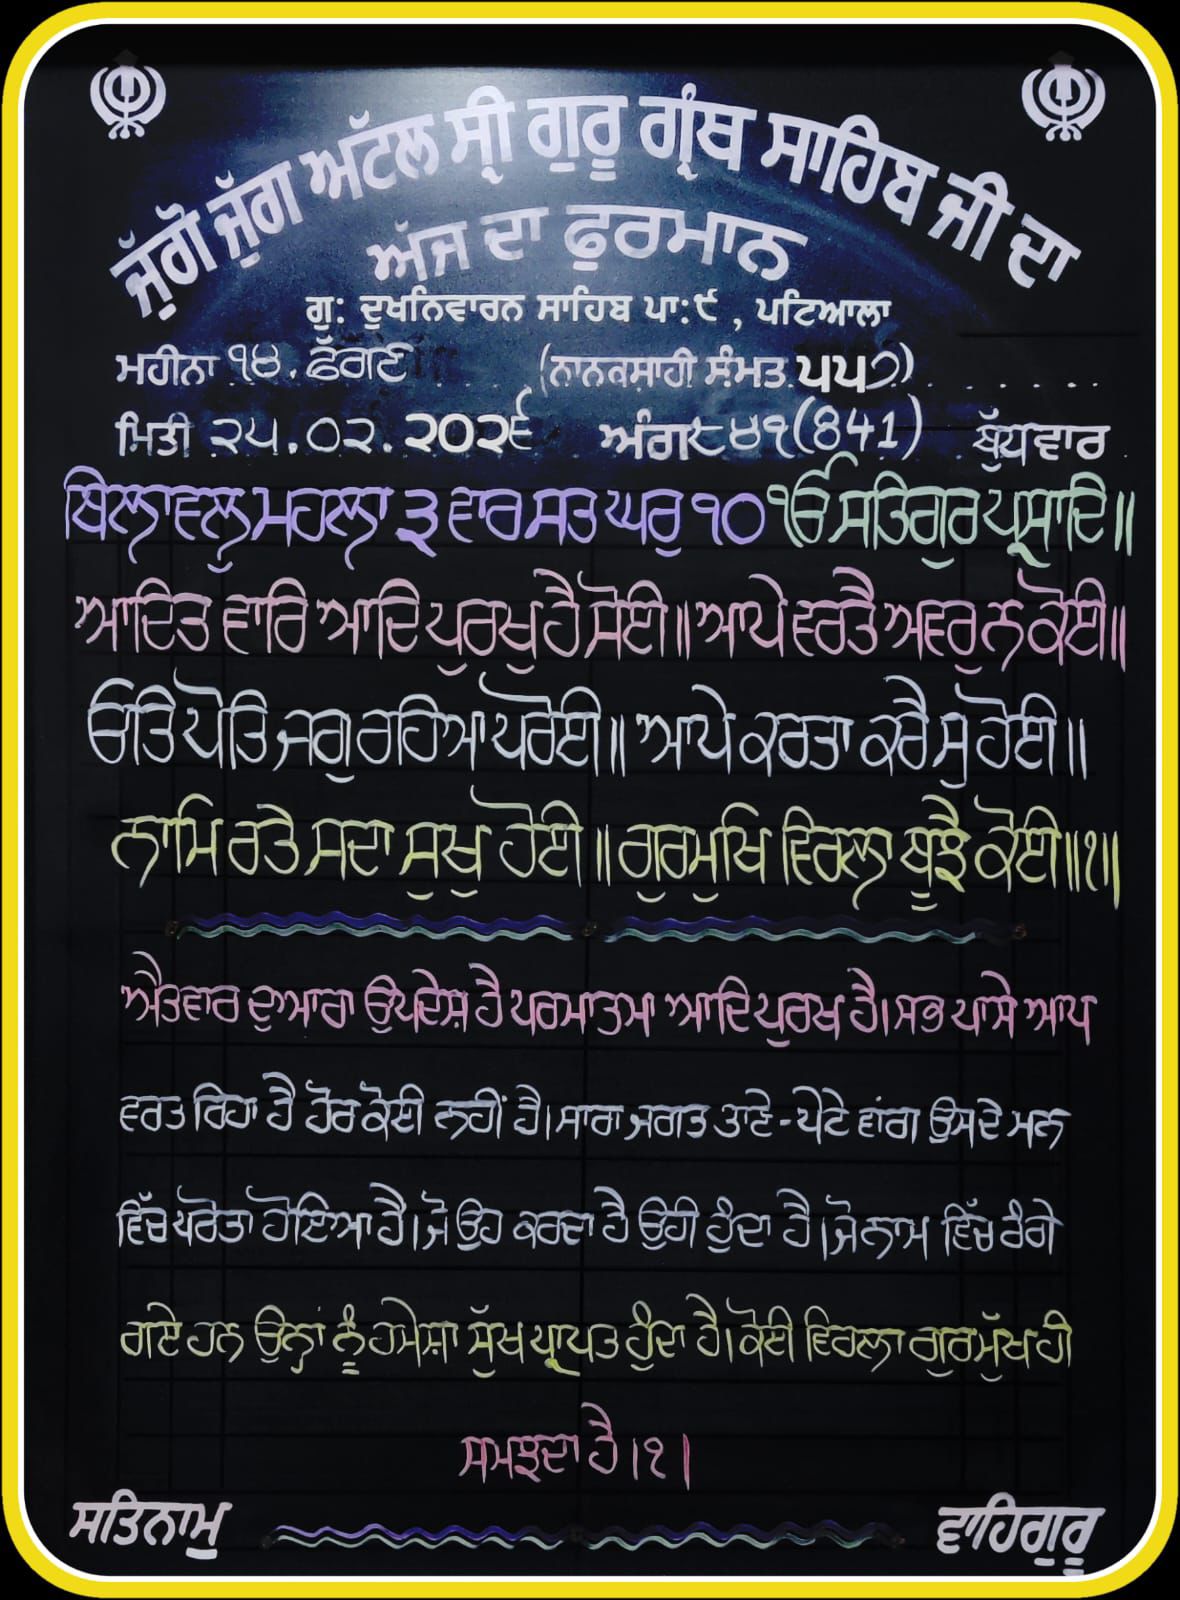 ਜੁੱਗੋ ਜੁੱਗ ਅੱਟਲ ਸ੍ਰੀ ਗੁਰੂ ਗ੍ਰੰਥ ਸਾਹਿਬ ਜੀ ਦਾ
ਅੱਜ ਦਾ ਫੁਰਮਾਨ
ਗੁ: ਦੁਖਨਿਵਾਰਨ ਸਾਹਿਬ ਪਾ:੯ , ਪਟਿਆਲਾ
ਮਹੀਨਾ ੧੪. ਫੱਗਣ (ਨਾਨਕਸਾਹੀ ਸੰਮਤ ੫੫੭)
ਮਿਤੀ ੨੫.੦੨.੨੦੨੬ ਅੰਗ ੮੪੧(841) ਬੁੱਧਵਾਰ
ਬਿਲਾਵਲੁ ਮਹਲਾ ੩ ਵਾਰ ਸਤ ਘਰੁ ੧੦ ੴ ਸਤਿਗੁਰ ਪ੍ਰਸਾਦਿ॥
ਆਦਿਤ ਵਾਰਿ ਆਦਿ ਪੁਰਖੁ ਹੈ ਸੋਈ॥ ਆਪੇ ਵਰਤੈ ਅਵਰੁ ਨ ਕੋਈ॥
ਓਤਿ ਪੋਤਿ ਜਗੁ ਰਹਿਆ ਪਰੋਈ॥ ਆਪੇ ਕਰਤਾ ਕਰੈ ਸੁ ਹੋਈ॥
ਨਾਮਿ ਰਤੇ ਸਦਾ ਸੁਖੁ ਹੋਈ॥ ਗੁਰਮੁਖਿ ਵਿਰਲਾ ਬੂਝੈ ਕੋਈ॥੧॥
ਐਤਵਾਰ ਦੁਆਰਾ ਉਪਦੇਸ਼ ਹੈ ਪਰਮਾਤਮਾ ਆਦਿ ਪੁਰਖ ਹੈ। ਸਭ ਪਾਸੇ ਆਪ
ਵਰਤ ਰਿਹਾ ਹੈ ਹੋਰ ਕੋਈ ਨਹੀਂ ਹੈ। ਸਾਰਾ ਜਗਤ ਤਾਣੇ-ਪੇਟੇ ਵਾਂਗ ਉਸਦੇ ਮਨ
ਵਿੱਚ ਪਰੋਤਾ ਹੋਇਆ ਹੈ। ਜੋ ਉਹ ਕਰਦਾ ਹੈ ਉਹੀ ਹੁੰਦਾ ਹੈ। ਜੋ ਨਾਮ ਵਿੱਚ ਰੰਗੇ
ਗਏ ਹਨ ਉਨ੍ਹਾਂ ਨੂੰ ਹਮੇਸ਼ਾ ਸੁੱਖ ਪ੍ਰਾਪਤ ਹੁੰਦਾ ਹੈ। ਕੋਈ ਵਿਰਲਾ ਗੁਰਮੁੱਖ ਹੀ
ਸਮਝਦਾ ਹੈ।੧।
ਸਤਿਨਾਮੁ ਵਾਹਿਗੁਰੂ